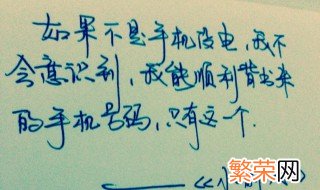 如果不是手机没电，我不
会意识到，我能顺利背出来
的手机号码，只有这个.
——《
繁荣网